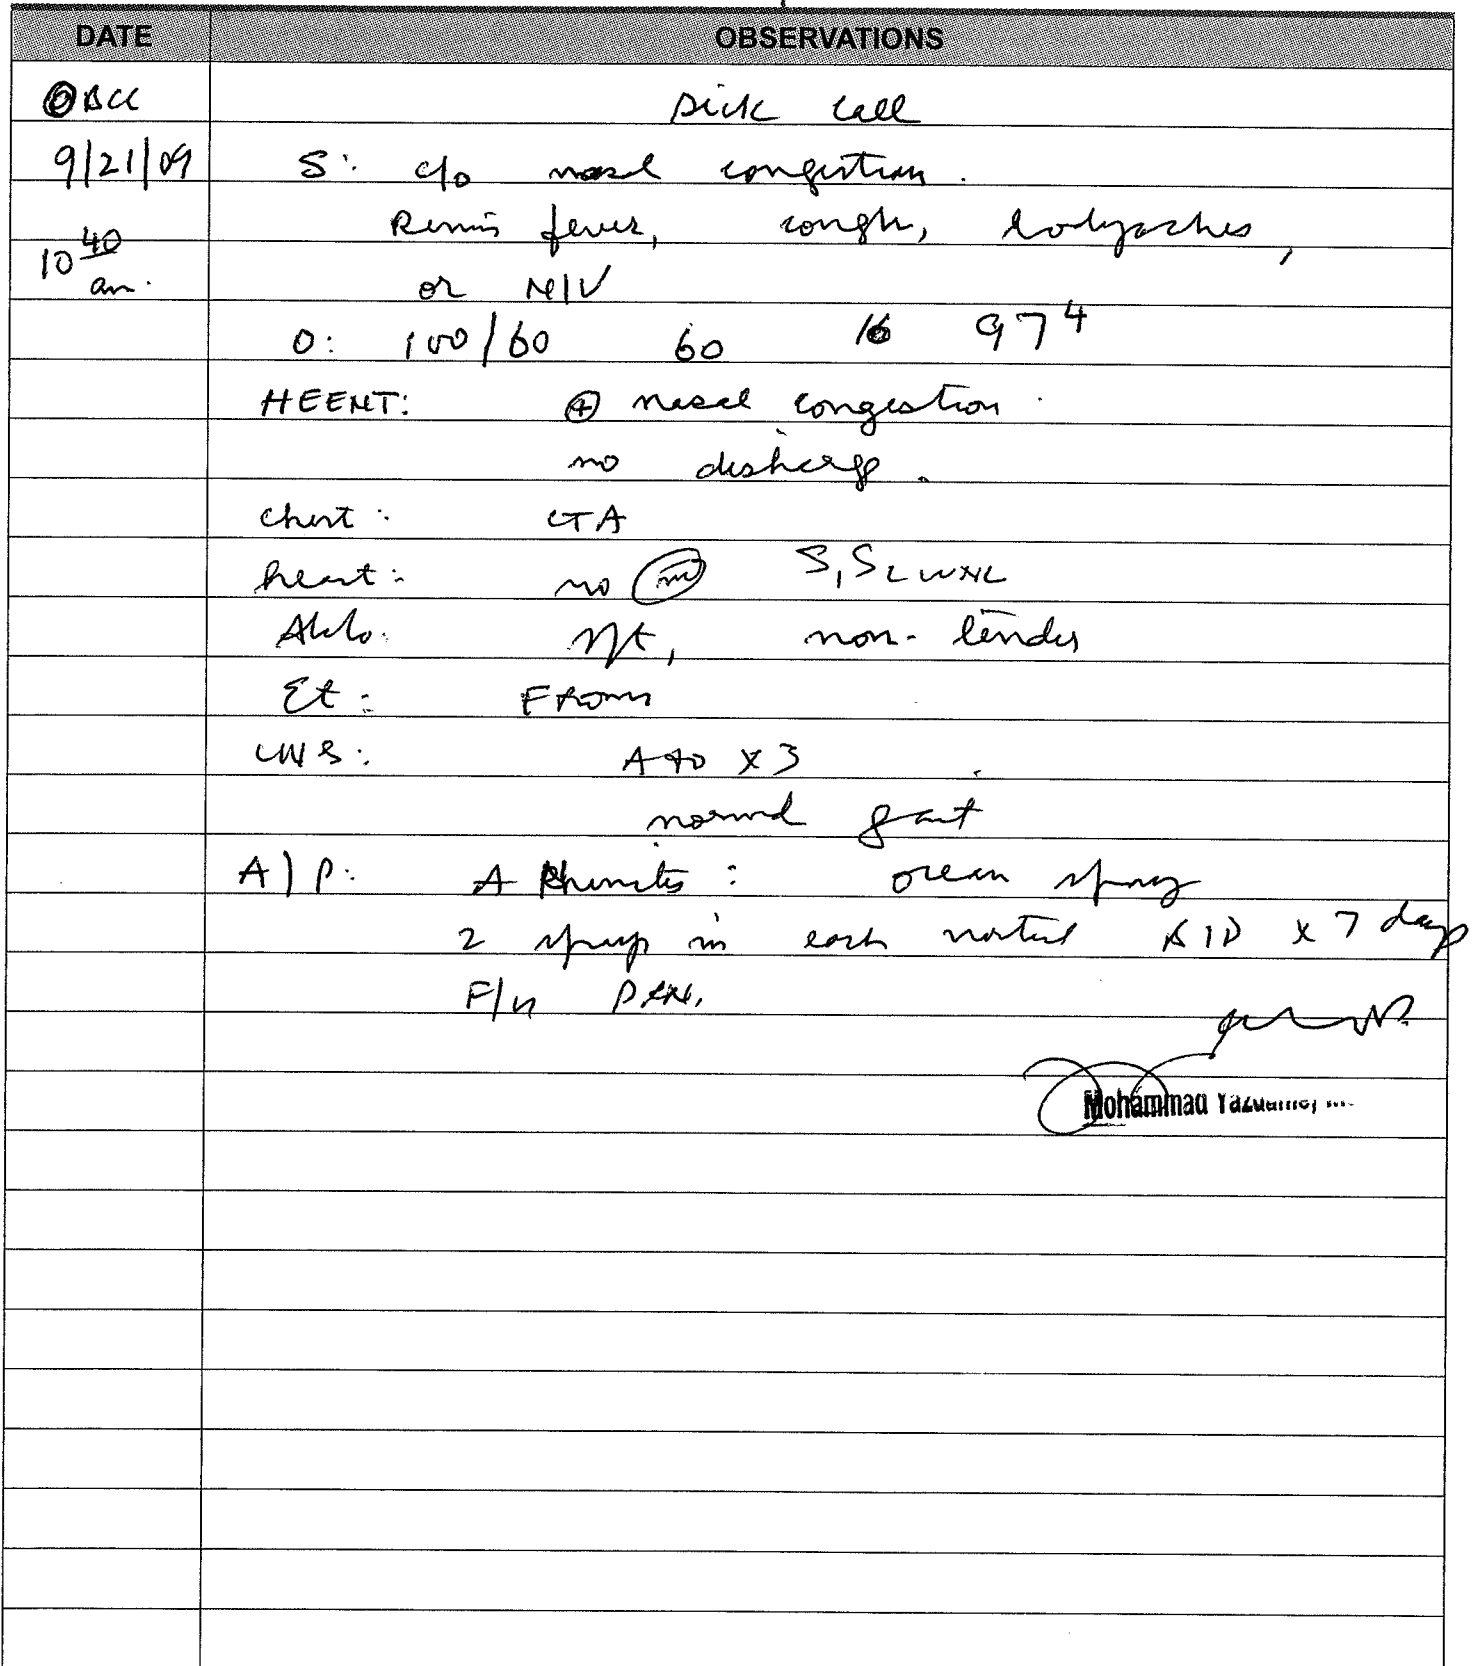 DATE OBSERVATIONS
@ BCC Sick Call
9/21/09 S: c/o nasal congestion.
Denies fever, cough, bodyaches,
10 40 am. or N/V
O: 100/60 60 16 97 4
HEENT: ⊕ nasal congestion.
no discharge.
Chest: CTA
heart: no (m) S1S2 WNL
Abdo: non-tender
Ext: FROM
CNS: A+O x 3
normal gait
A/P: A Rhinitis: ocean spray
2 sprays in each nostril BID x 7 days
F/U PRN.
Mohammad